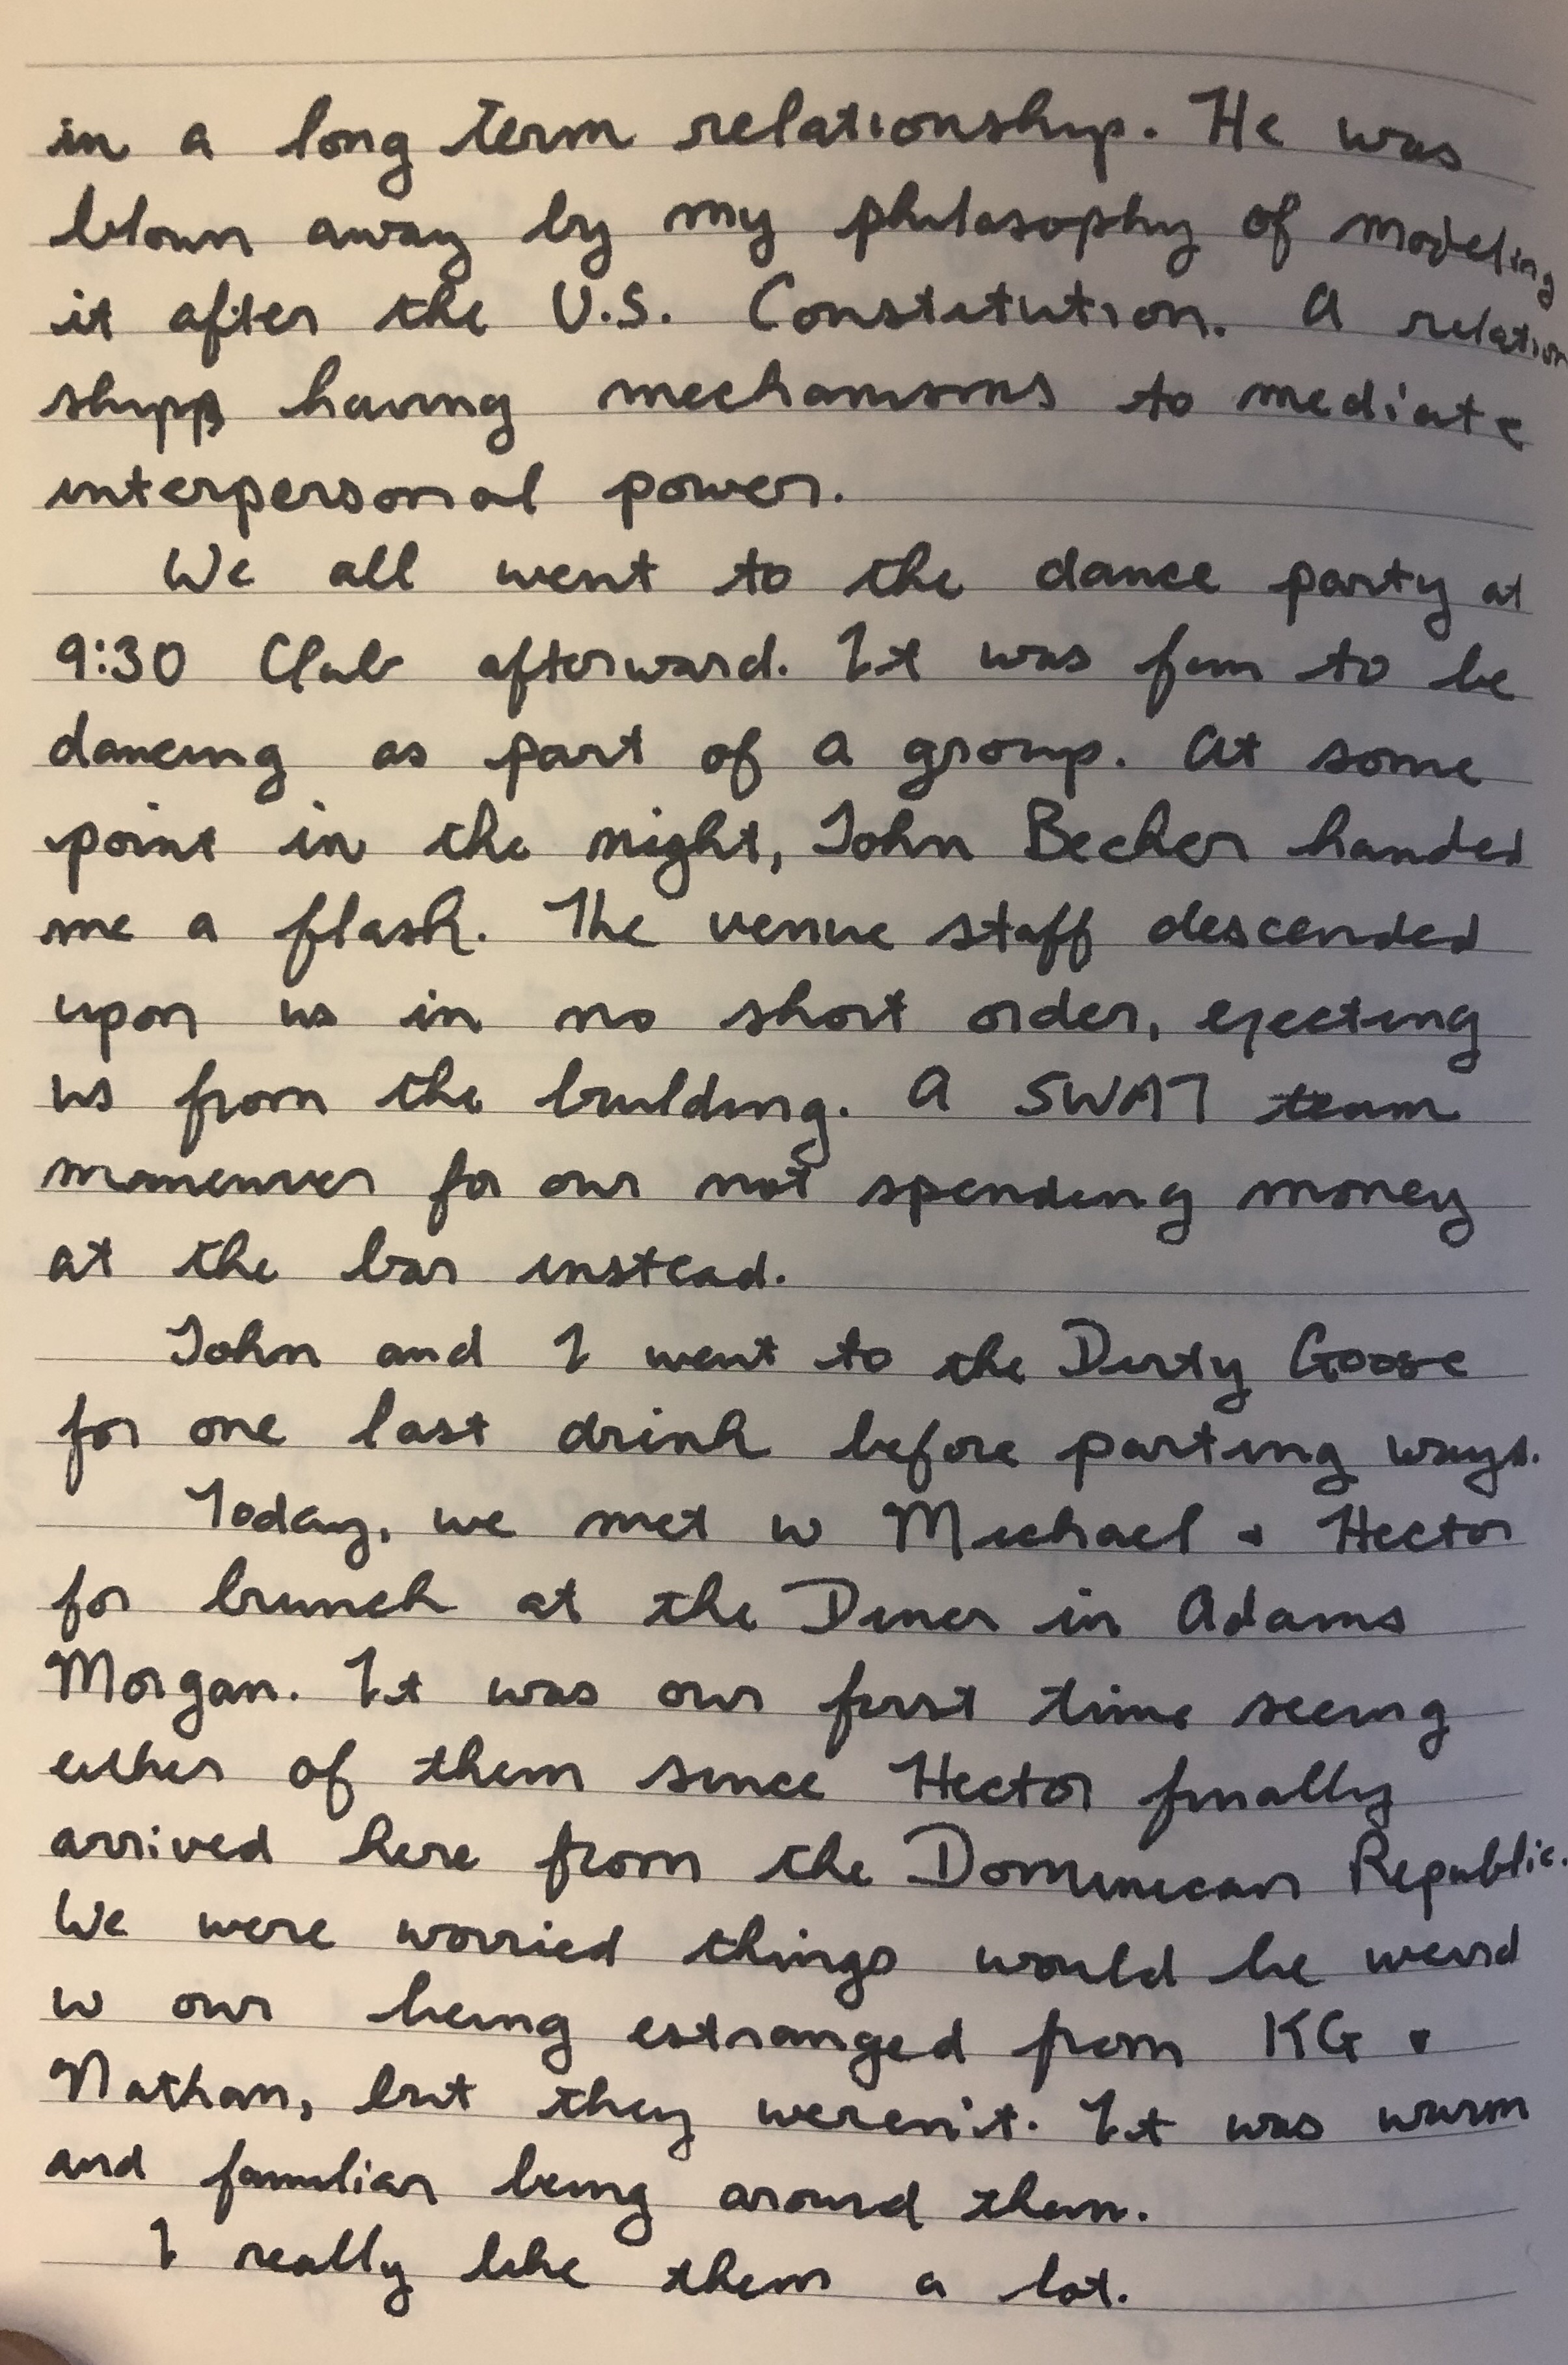 in a long term relationship. He was
blown away by my philosophy of modeling
it after the U.S. Constitution. A relation
ship having mechanisms to mediate
interpersonal power.
We all went to the dance party at
9:30 Club afterward. It was fun to be
dancing as part of a group. At some
point in the night, John Becker handed
me a flask. The venue staff descended
upon us in no short order, ejecting
us from the building. A SWAT team
maneuver for our not spending money
at the bar instead.
John and I went to the Dirty Goose
for one last drink before parting ways.
Today, we met w Michael + Hector
for brunch at the Diner in Adams
Morgan. It was our first time seeing
either of them since Hector finally
arrived here from the Dominican Republic.
We were worried things would be weird
w our being estranged from KG +
Nathan, but they weren't. It was warm
and familiar being around them.
I really like them a lot.